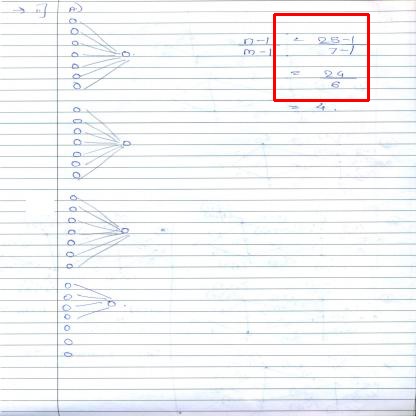 → ii] A)
n-1 / m-1 = 25-1 / 7-1
= 24 / 6
= 4.